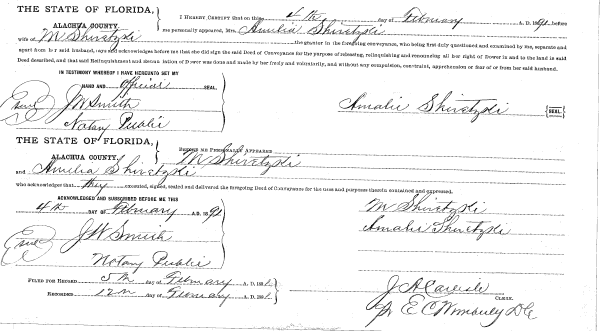 THE STATE OF FLORIDA,
ALACHUA COUNTY.
I HEREBY CERTIFY that on this 4th day of February A. D. 1891, before
me personally appeared, Mrs. Amelia Shiretzski
wife of M Shiretzski the grantor in the foregoing conveyance, who being first duly questioned and examined by me, separate and
apart from her said husband, says and acknowledges before me that she did sign the said Deed of Conveyance for the purpose of releasing, relinquishing and renouncing all her right of Dower in and to the land in said
Deed described, and that said Relinquishment and Renunciation of Dower was done and made by her freely and voluntarily, and without any compulsion, constraint, apprehension or fear of or from her said husband.
IN TESTIMONY WHEREOF I HAVE HEREUNTO SET MY
HAND AND official SEAL,
J W Smith
Notary Public
Amalie Shiretzski SEAL
THE STATE OF FLORIDA,
ALACHUA COUNTY.
BEFORE ME PERSONALLY APPEARED
M Shiretzski
and Amelia Shiretzski
who acknowledged that they executed, signed, sealed and delivered the foregoing Deed of Conveyance for the uses and purposes therein contained and expressed.
ACKNOWLEDGED AND SUBSCRIBED BEFORE ME THIS
4th DAY OF February A.D. 1891
M Shiretzski
Amalie Shiretzski
J W Smith
Notary Public
FILED FOR RECORD 5th day of February A. D. 189
RECORDED 12th day of February A. D. 189
J A Carlisle CLERK.
E C Wimberly D C